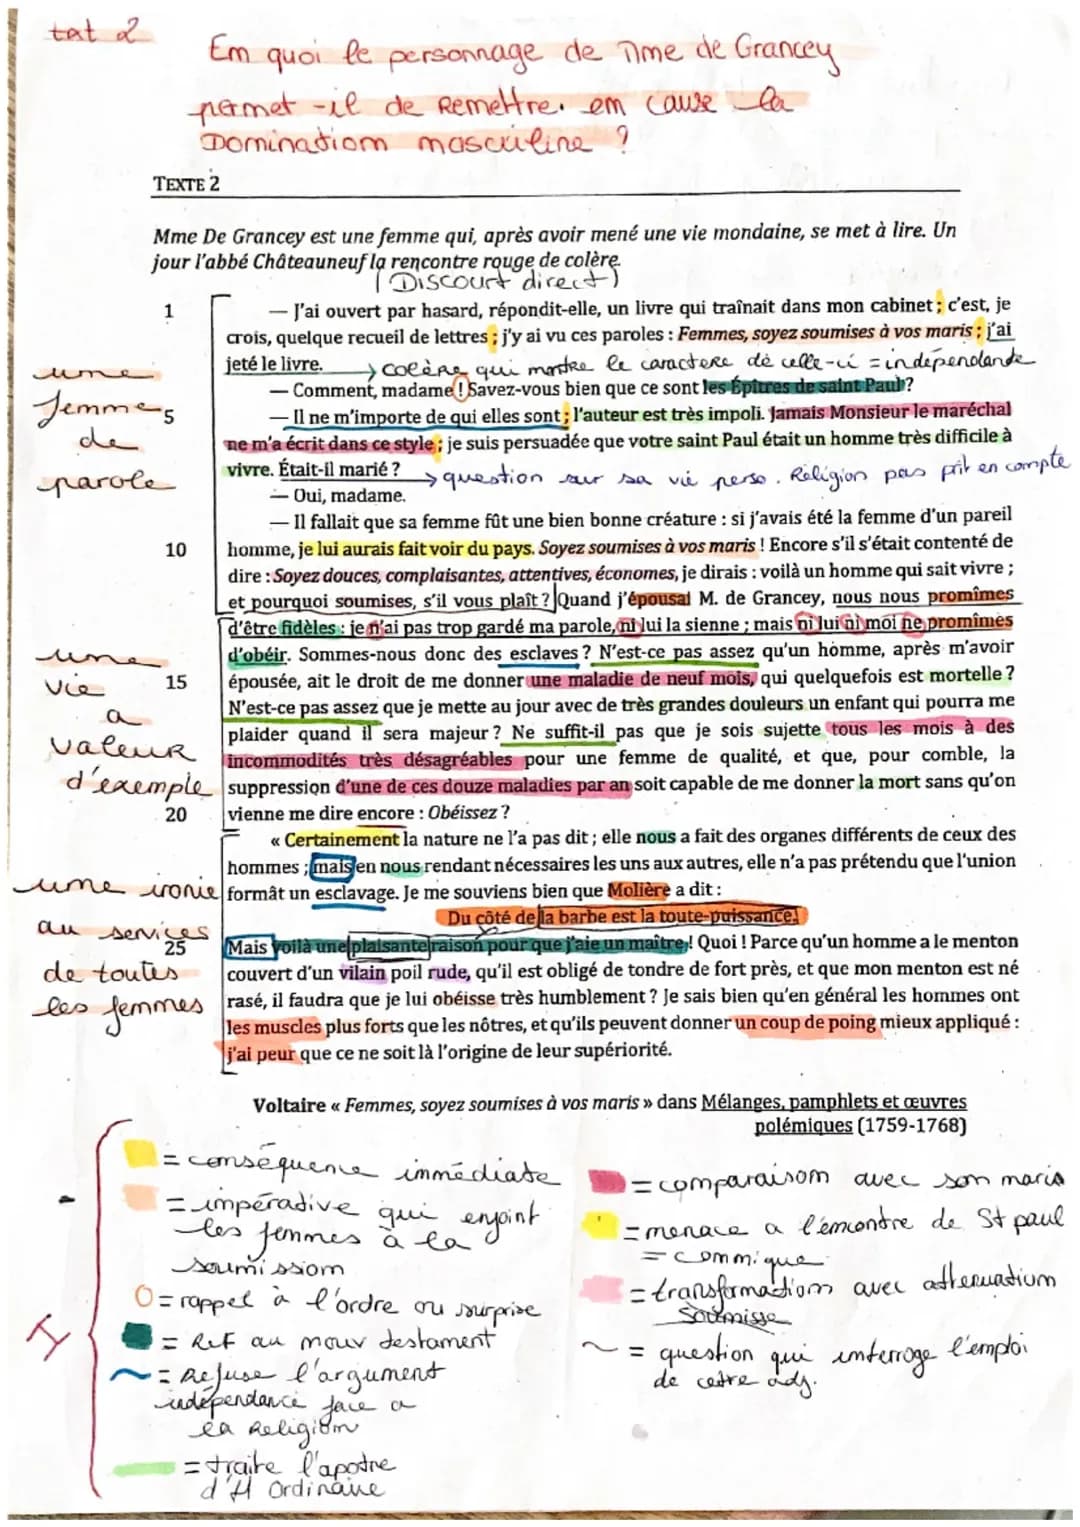 tet 2
Em quoi le personnage de Mme de Grancey
permet-il de Remettre em cause la
Dominatiom masculine ?
TEXTE 2
Mme De Grancey est une femme qui, après avoir mené une vie mondaine, se met à lire. Un
jour l'abbé Châteauneuf la rencontre rouge de colère.
(Discourt direct)
1 — J'ai ouvert par hasard, répondit-elle, un livre qui traînait dans mon cabinet ; c'est, je
crois, quelque recueil de lettres ; j'y ai vu ces paroles : Femmes, soyez soumises à vos maris ; j'ai
jeté le livre. → colère qui montre le caractere de celle-ci = indépendante
— Comment, madame ! Savez-vous bien que ce sont les Épîtres de saint Paul ?
5 — Il ne m'importe de qui elles sont ; l'auteur est très impoli. Jamais Monsieur le maréchal
ne m'a écrit dans ce style ; je suis persuadée que votre saint Paul était un homme très difficile à
vivre. Était-il marié ? → question sur sa vie perso. Religion pas prit en compte
— Oui, madame.
— Il fallait que sa femme fût une bien bonne créature : si j'avais été la femme d'un pareil
10 homme, je lui aurais fait voir du pays. Soyez soumises à vos maris ! Encore s'il s'était contenté de
dire : Soyez douces, complaisantes, attentives, économes, je dirais : voilà un homme qui sait vivre ;
et pourquoi soumises, s'il vous plaît ? Quand j'épousai M. de Grancey, nous nous promîmes
d'être fidèles : je n'ai pas trop gardé ma parole, ni lui la sienne ; mais ni lui ni moi ne promîmes
d'obéir. Sommes-nous donc des esclaves ? N'est-ce pas assez qu'un homme, après m'avoir
15 épousée, ait le droit de me donner une maladie de neuf mois, qui quelquefois est mortelle ?
N'est-ce pas assez que je mette au jour avec de très grandes douleurs un enfant qui pourra me
plaider quand il sera majeur ? Ne suffit-il pas que je sois sujette tous les mois à des
incommodités très désagréables pour une femme de qualité, et que, pour comble, la
suppression d'une de ces douze maladies par an soit capable de me donner la mort sans qu'on
20 vienne me dire encore : Obéissez ?
« Certainement la nature ne l'a pas dit ; elle nous a fait des organes différents de ceux des
hommes ; mais en nous rendant nécessaires les uns aux autres, elle n'a pas prétendu que l'union
formât un esclavage. Je me souviens bien que Molière a dit :
Du côté de la barbe est la toute-puissance.
25 Mais voilà une plaisante raison pour que j'aie un maître ! Quoi ! Parce qu'un homme a le menton
couvert d'un vilain poil rude, qu'il est obligé de tondre de fort près, et que mon menton est né
rasé, il faudra que je lui obéisse très humblement ? Je sais bien qu'en général les hommes ont
les muscles plus forts que les nôtres, et qu'ils peuvent donner un coup de poing mieux appliqué :
j'ai peur que ce ne soit là l'origine de leur supériorité.
Voltaire « Femmes, soyez soumises à vos maris » dans Mélanges, pamphlets et œuvres
polémiques (1759-1768)
ume
femme
de
parole
ume
vie
a
valeur
d'exemple
ume ironie
au services
de toutes
les femmes
I
= conséquence immédiate
= impérative qui enjoint
les femmes à la
soumissiom
O = rappel à l'ordre ou surprise
= Réf au mouv testament
~ = Refuse l'argument
indépendance face a
la Religiom
= traite l'apotre
d'H Ordinaire
= comparaisom avec som maris
= menace a l'emcontre de St paul
= commique
= transformatiom avec attenuatium
Soumisse
~ = question qui imterroge l'emploi
de cette adj.